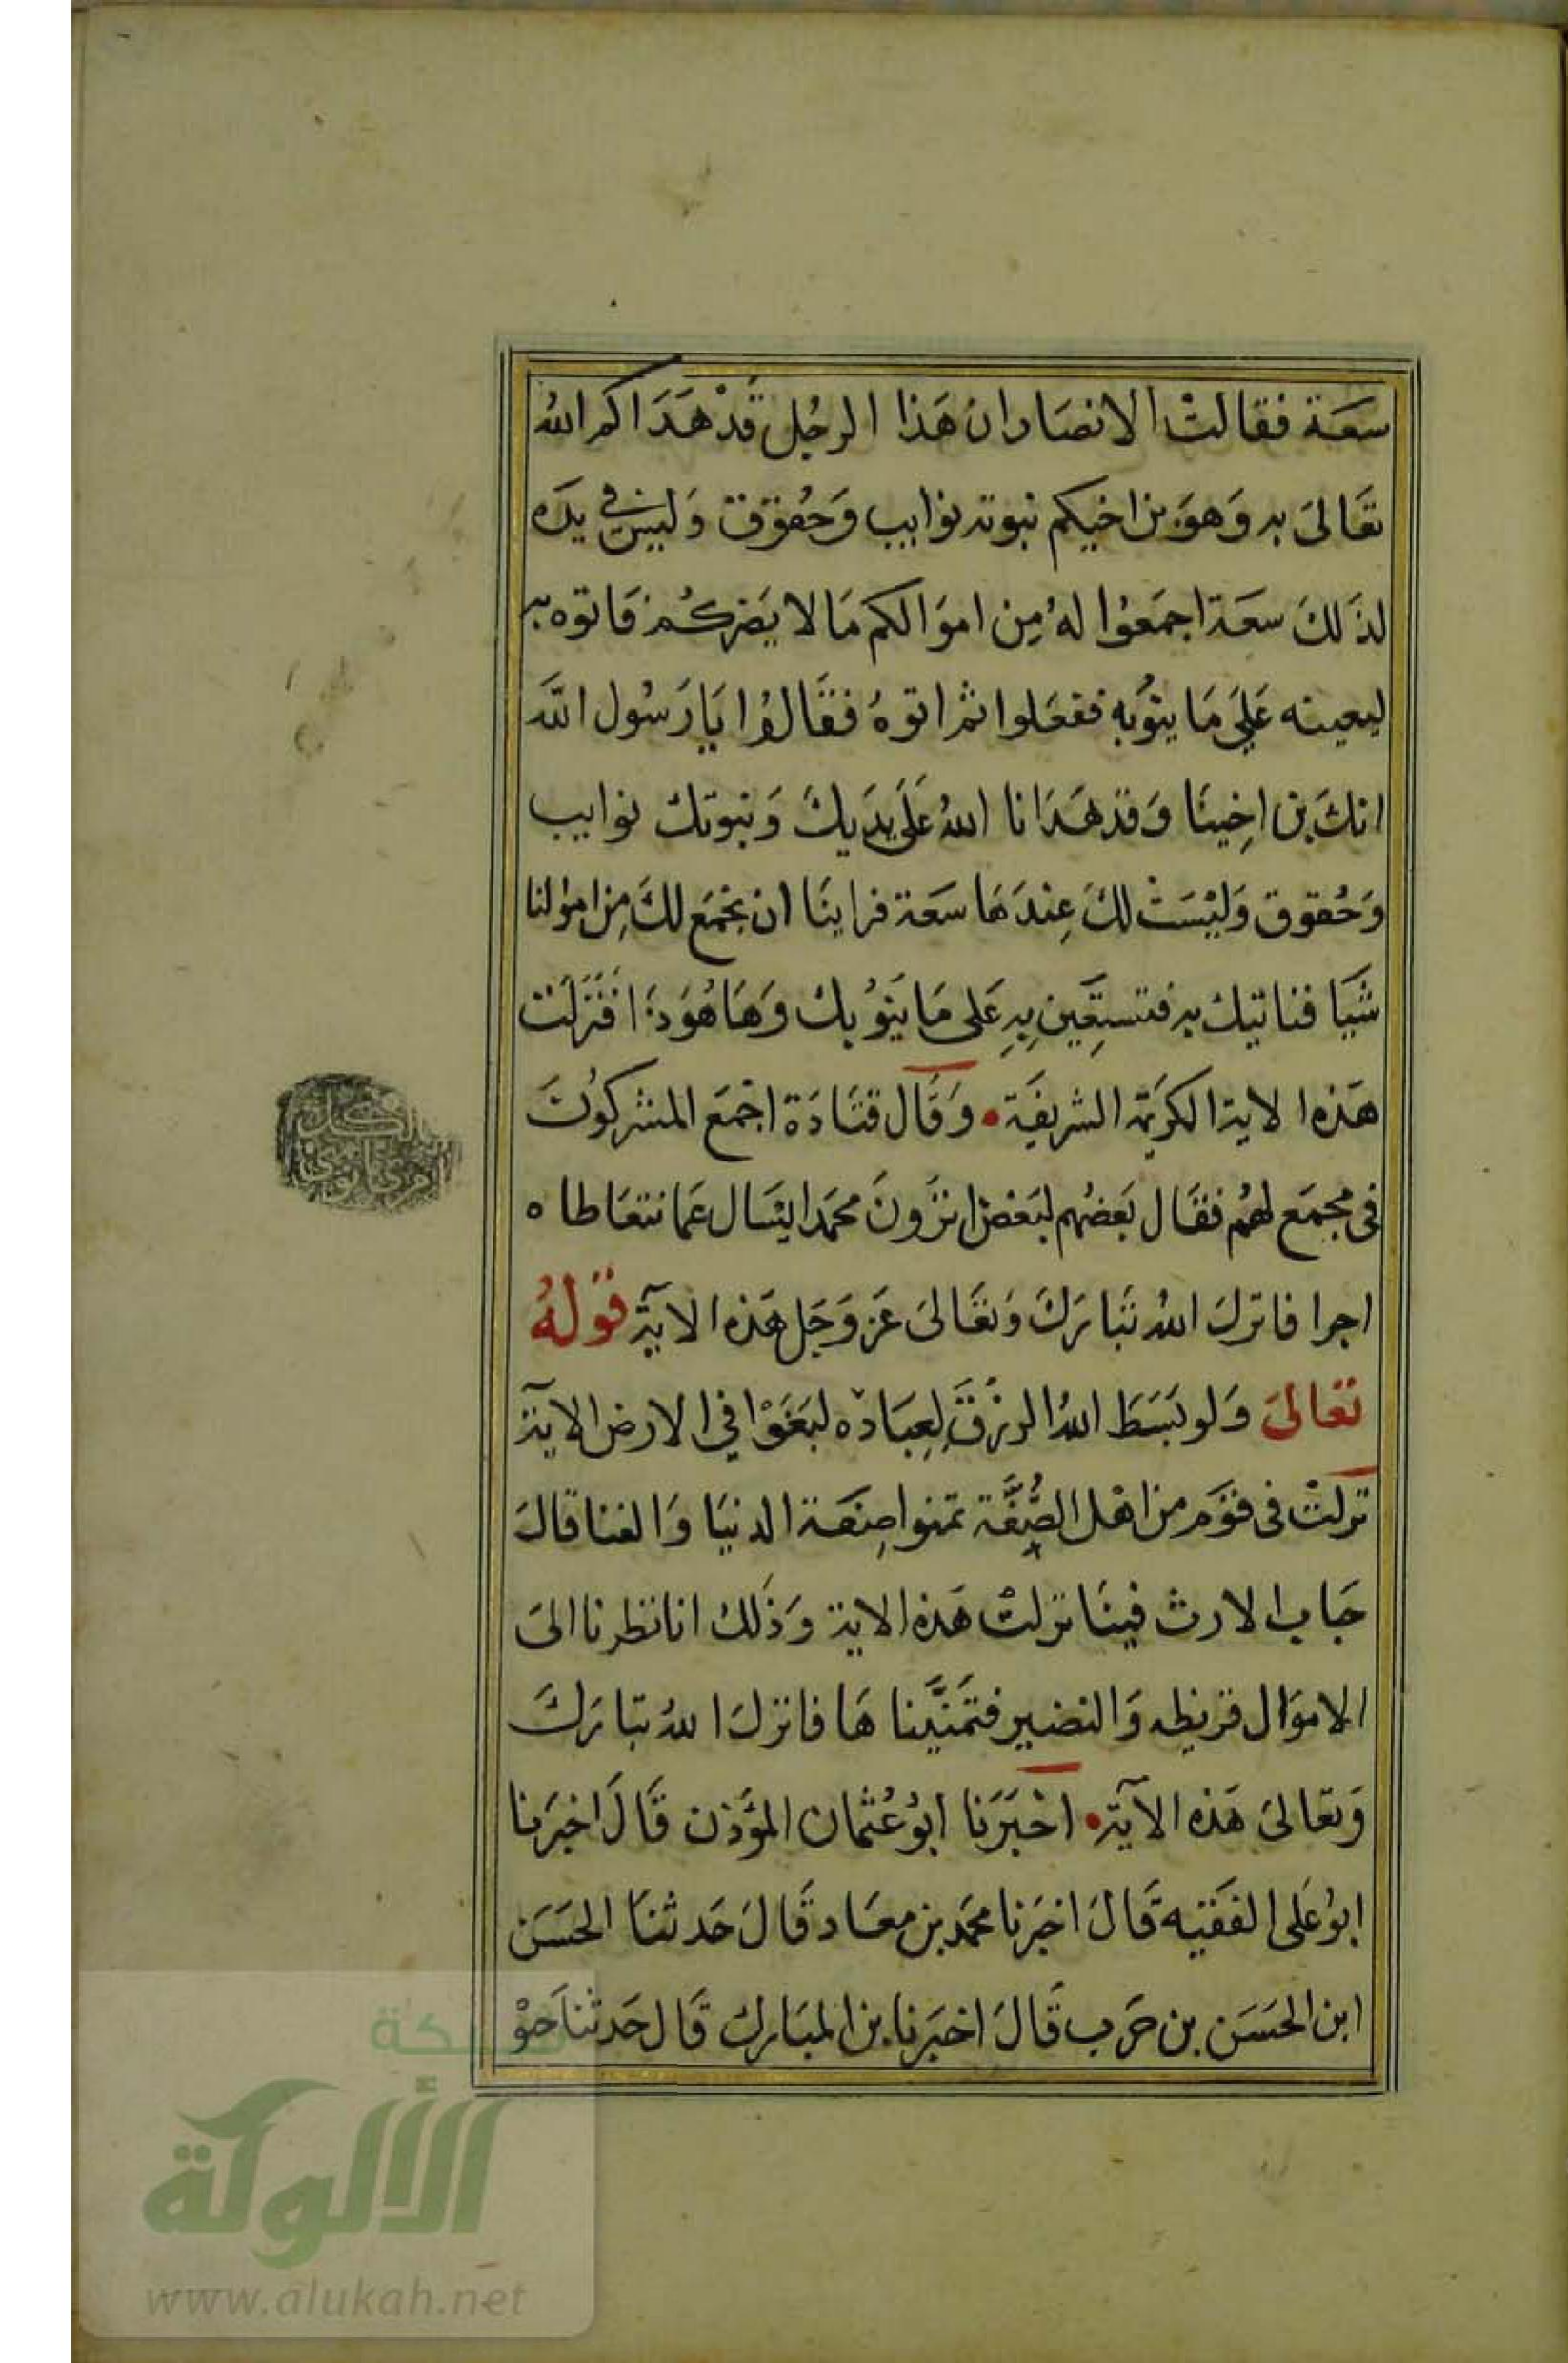 سَعَة فقالتْ الانصَار ان هَذا الرجُل قَدْ هَدَاكم الله
تعَالىَ به وَهوَ بن اخيكم نبوته نوايب وَحُقوق وَليسَ في يدَه
لذَلكَ سعَة اجمَعُوا لهُ مِن اموَالكم مَا لا يَضركُم فَاتوه به
ليعينه عَليَ مَا ينوُبه ففعَلوا ثم اتوهُ فقَالوُا يَا رَسُول اللهَ
انكَ بن اخِينَا وَقد هَدَانا اللهُ عَلَى يدَيكَ وَبنوتك نوايب
وَحُقوق وَليْسَتْ لكَ عِندَهَا سعَة فراينَا ان نجْمَع لكَ مِن امولنا
شَيَا فناتيك به فتستِعَين بِهِ عَلى مَا يَنوُبك وَهَا هُوَ ذَا فَنَزَلَت
هَذه الاية الكريمَة الشريفَة • وَقَال قتَادَة اجْمَع المشركوُنَ
في مجمَع لهُم فقَال بَعضُهم لبَعض اترَونَ محمَدا يسَال عَما نتعَاطاه
اجرا فانزلَ اللهُ تبَارَكَ وَتعَالىَ عَز وَجَل هَذه الآيَة قَولهُ
تعَالىَ وَلو بَسَطَ اللهُ الرزقَ لِعِبَادَه لبَغَوْا في الارض الاية
نزلتْ في قوَم من اهْل الصُّفَّة تمنوا صِنعَة الدنيَا وَالغنا قالَ
خبَاب الارث فينَا نزلتْ هَذه الاية وَذَلك انا نظرنا الىَ
الاموَال قريظه وَالنضير فتمَنَّينا هَا فانزلَ اللهُ تبَارَكَ
وَتعَالىَ هَذه الآيَة • اخْبَرَنا ابُو عُثمان المؤَذن قَالَ اخبرَنا
ابوُ عَلى الفَقيه قَالَ اخبَرنا محمَد بن معَاد قَالَ حَدثنَا الحسَن
ابن الحسَن بن حَرب قَالَ اخبَرنا بن المبَارك قَال حَدثنا حَوْ
شبكة
الألوكة
www.alukah.net